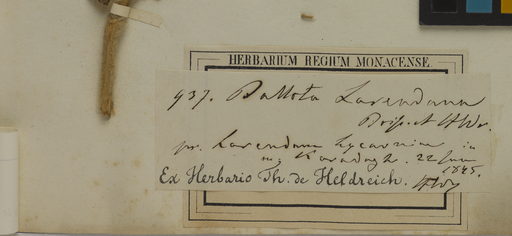 HERBARIUM REGIUM MONACENSE
937. Ballota Larendana
Boiss. et Hldr.
pr. Larendam Lycaoniae in
Karadagh. 22 Jun
1845.
Ex Herbario Th. de Heldreich.